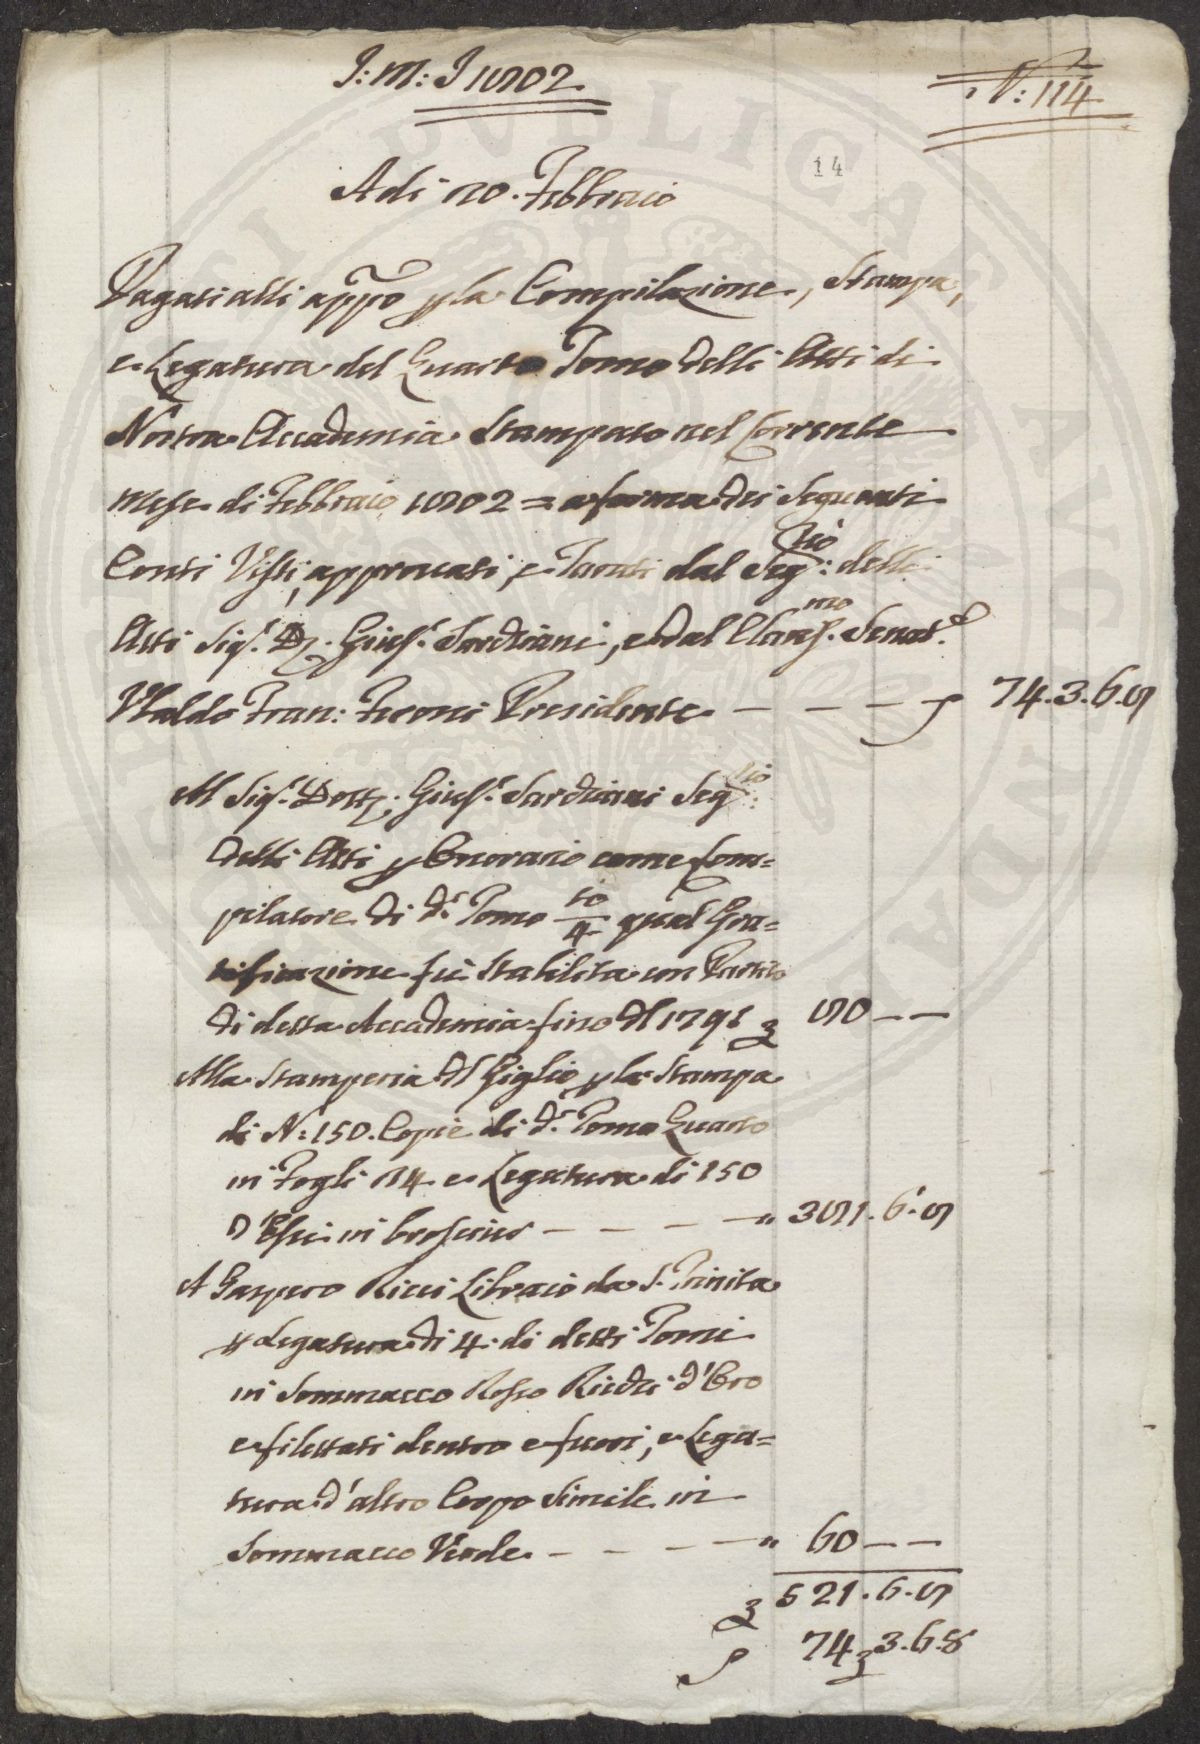 I: M: I 1802
N: 114
14
Adi Febbraio
Pagati alli app.o p la Compilazione, Stampa,
e Legatura del Quarto Tomo delli Atti di
Nostra Accademia Stampato nel Corrente
Mese di Febbraio 1802 = a forma dei Seguenti
Conti Visti, approvati, e Tarati dal Seg.rio delli
Atti Sig.r D. Gius.e Sarchiani, e dal Clariss.mo Senat.e
Ubaldo Fran: Feroni Presidente - - - - 74.3.6.8
Al Sig.r Dott. Gius.e Sarchiani Seg.rio
delli Atti p Onorario come Com=
pilatore di d.o Tomo 4.to qual Gra=
tificazione fù stabilita con Partito
di detta Accademia fino dl 1791 80 - -
Alla Stamperia dl Giglio p la Stampa
di N: 150. Copie di d.o Tomo Quarto
in Fogli e Legatura di 150
d'Essi in brosciur - - - - " 381.6.8
A Gaspero Ricci Libraio da S. Trinita
p Legatura di 4. di detti Tomi
in Sommacco Rosso Ricchi d'Oro
e filettati dentro e fuori, e Lega=
tura d'altro Corpo Simile in
Sommacco Verde - - - - " 60 - -
521.6.8
74 3.6.8